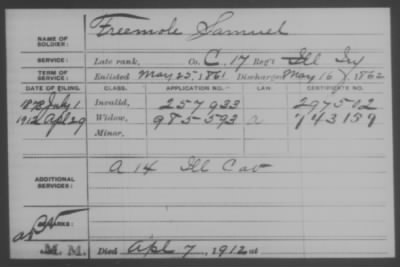 NAME OF SOLDIER: Freemole Samuel
SERVICE: Late rank, Co. C. 17 Reg't Ill Inf
TERM OF SERVICE: Enlisted May 25, 1861 Discharged May 16, 1862
DATE OF FILING. CLASS. APPLICATION NO. LAW CERTIFICATE NO.
1878 July 1 Invalid, 257933 297502
1912 Apl 29 Widow, 985593 a 743159
Minor,
ADDITIONAL SERVICES: A 14 Ill Cav
REMARKS:
M. M. Died Apl 7, 1912 at